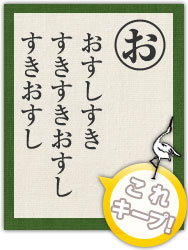 お
おすしすき
すきすきおすし
すきおすし
これ
キープ!